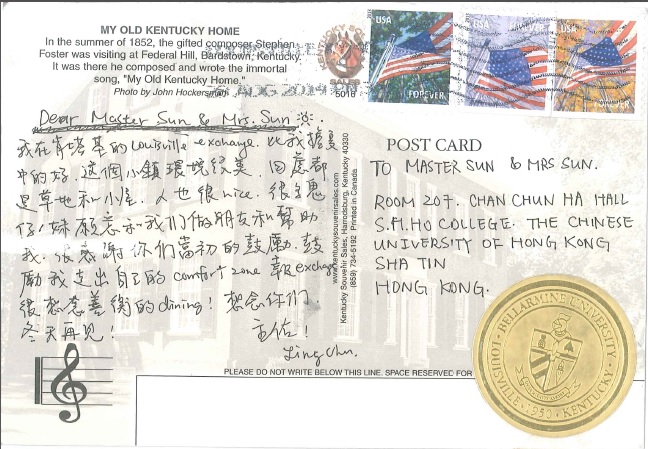 MY OLD KENTUCKY HOME
In the summer of 1852, the gifted composer Stephen
Foster was visiting at Federal Hill, Bardstown, Kentucky.
It was there he composed and wrote the immortal
song, "My Old Kentucky Home."
Photo by John Hockersmith
5018
USA
FOREVER
USA
USA
Dear Master Sun & Mrs. Sun
我在肯塔基的Louisville exchange. 比我擔憂
中的好. 這個小鎮環境很美 四處都
是草地和小屋. 人也很nice. 很多鬼
仔/妹願意和我們做朋友和幫助
我. 很感謝你們當初的鼓勵. 鼓
勵我走出自己的comfort zone 報exchange
很想念善衡的dining! 想念你們.
冬天再見! 主佑!
Ling Chu.
www.kentuckysouvenirsales.com
Kentucky Souvenir Sales, Harrodsburg, Kentucky 40330
(859) 734-5192 Printed in Canada
POST CARD
TO MASTER SUN & MRS SUN.
ROOM 207. CHAN CHUN HA HALL
S.H.HO COLLEGE. THE CHINESE
UNIVERSITY OF HONG KONG
SHA TIN
HONG KONG.
BELLARMINE UNIVERSITY
LOUISVILLE · 1950 · KENTUCKY
PLEASE DO NOT WRITE BELOW THIS LINE. SPACE RESERVED FOR